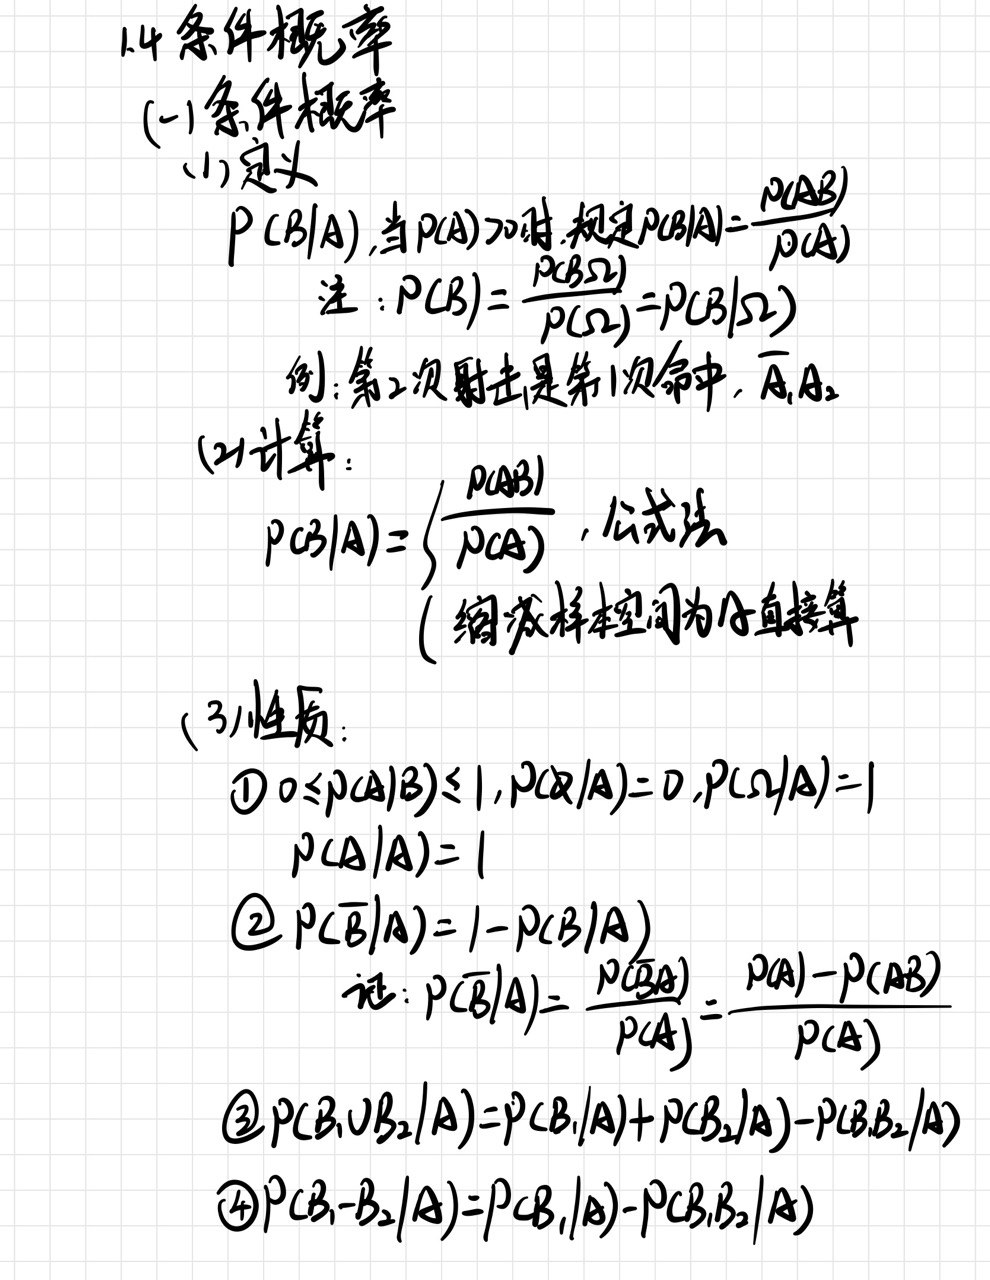 1.4 条件概率
(一)条件概率
(1)定义
P(B|A),当P(A)>0时,规定P(B|A)=P(AB)/P(A)
注:P(B)=P(BΩ)/P(Ω)=P(B|Ω)
例:第2次射击是第1次命中,A̅₁A₂
(2)计算:
P(B|A)={P(AB)/P(A),公式法
缩减样本空间为A直接算
(3)性质:
① 0≤P(A|B)≤1,P(∅|A)=0,P(Ω|A)=1
P(A|A)=1
② P(B̅|A)=1-P(B|A)
证:P(B̅|A)=P(B̅A)/P(A)=(P(A)-P(AB))/P(A)
③ P(B₁∪B₂|A)=P(B₁|A)+P(B₂|A)-P(B₁B₂|A)
④ P(B₁-B₂|A)=P(B₁|A)-P(B₁B₂|A)